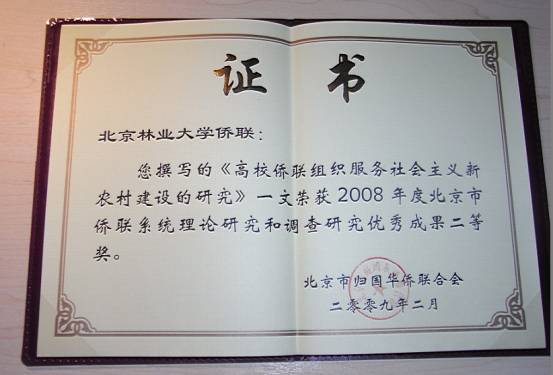 证 书
北京林业大学侨联：
您撰写的《高校侨联组织服务社会主义新
农村建设的研究》一文荣获 2008 年度北京市
侨联系统理论研究和调查研究优秀成果二等
奖。
北京市归国华侨联合会
二零零九年二月